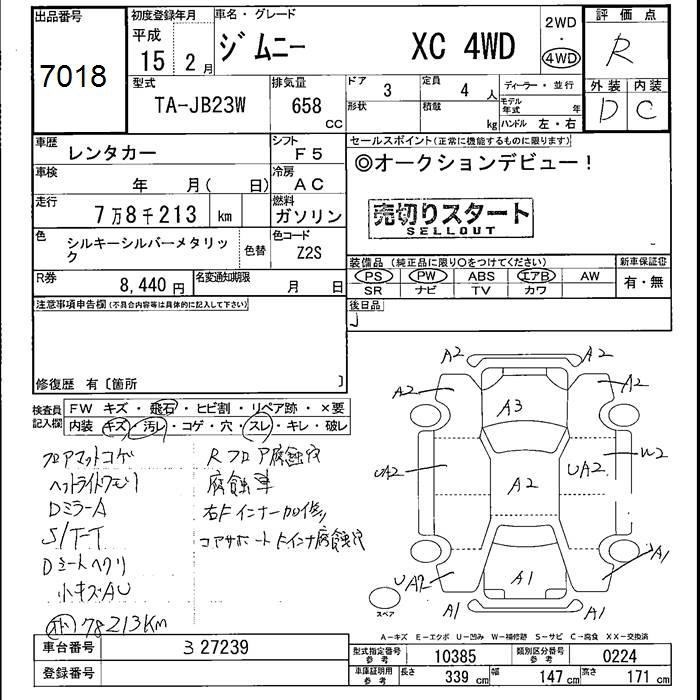 出品番号
7018
初度登録年月
平成
15 年 2 月
車名・グレード
ジムニー XC 4WD
2WD
・
4WD
評価点
R
外装 内装
D C
型式
TA-JB23W
排気量
658
CC
ドア
3
定員
4 人
ディーラー・並行
形状
積載
kg
モデル年式 年
ハンドル 左・右
車歴
レンタカー
シフト
F5
車検
年 月( 日)
冷房
AC
走行
7万8千213 km
燃料
ガソリン
色
シルキーシルバーメタリック
色替
色コード
Z2S
R券
8,440 円
名変通知期限
月 日
セールスポイント(正常に機能するものに限ります)
◎オークションデビュー!
売切りスタート
SELLOUT
装備品(純正品に限り○をつけてください)
新車保証書
PS PW ABS エアB AW
SR ナビ TV カワ
有・無
後日品
注意事項申告欄(不具合内容等は具体的に記入して下さい)
修復歴 有〔箇所 〕
検査員記入欄
FW キズ・飛石・ヒビ割・リペア跡・×要
内装 キズ・汚レ・コゲ・穴・スレ・キレ・破レ
フロアマットコゲ
DミラーA
S/T-T
小キズAU
78213Km
Rフロア腐蝕穴
腐蝕車
コアサポートFインナ腐蝕穴
A2 A2
A2 A2
A3
UA2 A2 UA2 W2
UA2 A1 A1
A1 A1
スペア
A-キズ E-エクボ U-凹み W-補修跡 S-サビ C-腐食 XX-交換済
車台番号
327239
登録番号
型式指定番号
参考
10385
類別区分番号
参考
0224
車庫証明用
参考
長さ 339 cm 幅 147 cm 高さ 171 cm